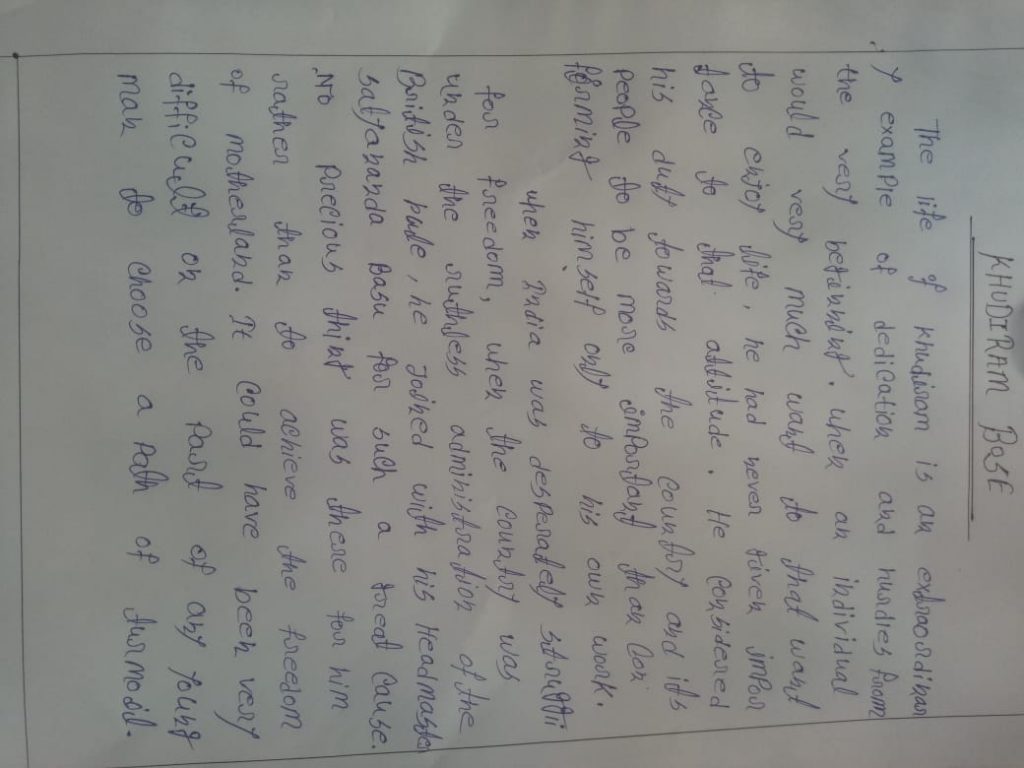 KHUDIRAM BOSE
The life of Khudiram is an extraordinar
y example of dedication and hurdles from
the very beginning. when an individual
would very much want to that want
to enjoy life, he had never given impor
tance to that attitude. He considered
his duty towards the country and its
people to be more important than con
firming himself only to his own work.
when India was desperately struggli
for freedom, when the country was
under the ruthless administration of the
British rule, he joined with his Headmaster
satyananda Basu for such a great cause.
No precious thing was there for him
rather than to achieve the freedom
of motherland. It could have been very
difficult on the part of any young
man to choose a path of turmoil.